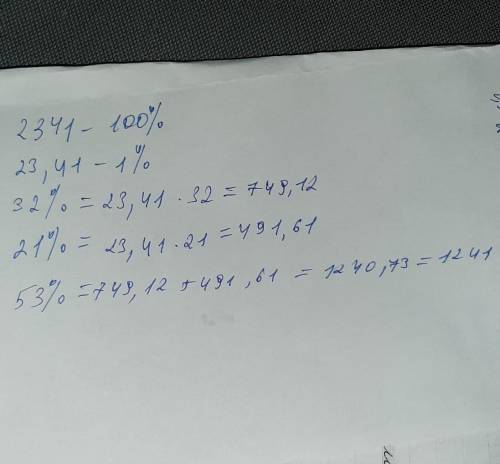 2341 - 100%
23,41 - 1%
32% = 23,41 · 32 = 749,12
21% = 23,41 · 21 = 491,61
53% = 749,12 + 491,61 = 1240,73 = 1241